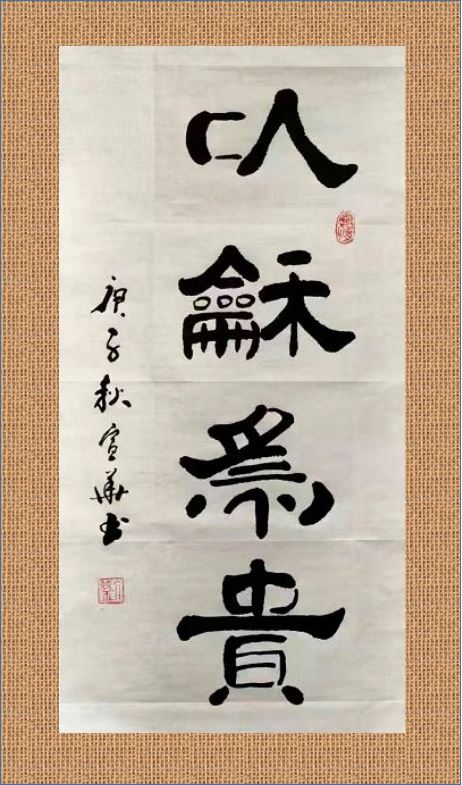 以龢為貴
庚子秋宣華书